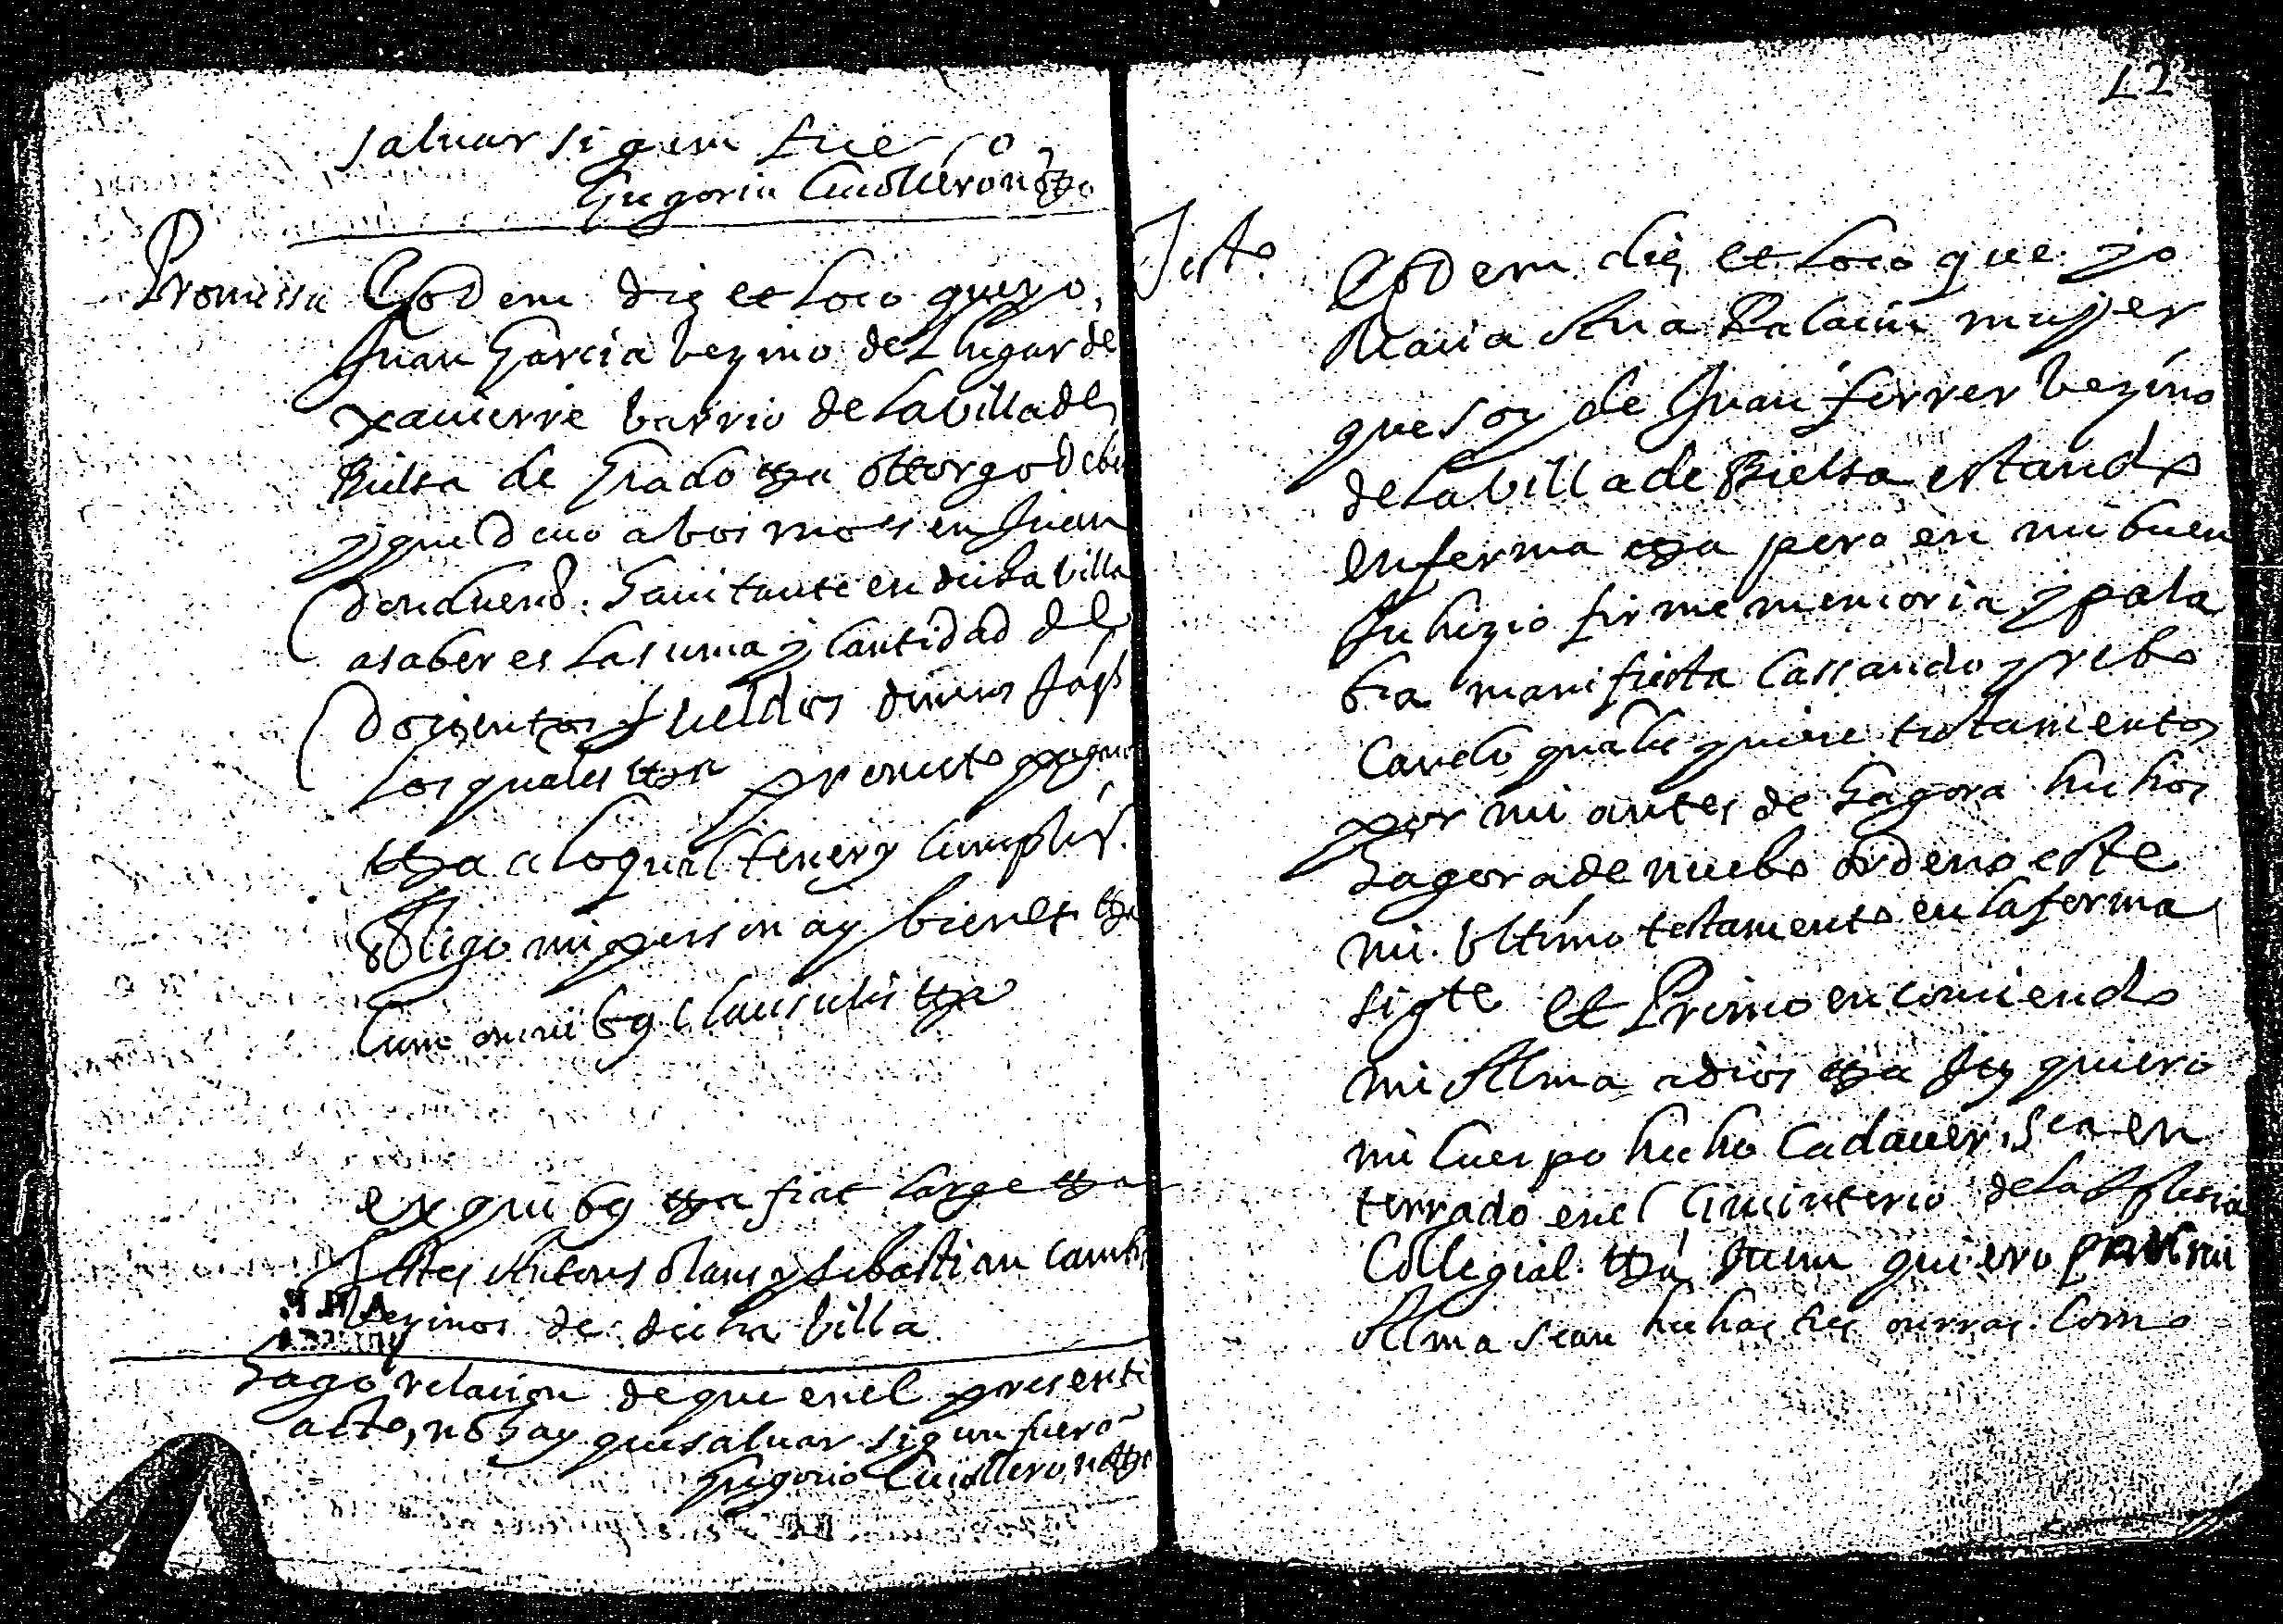 saluar sigun fuero
Gregorio Cuolleronotto
Promissa Eodem die et loco que yo
Juan Garcia vezino del lugar de
xauierre barrio de la villa de
Bielsa de Grado etta ottorgo deber
y que deuo a bos mossen Juan
hauitante en dicha villa
a saber es la suma y cantidad de
dozientos sueldos dineros Jaqs
los quales etta promето pagar
etta a lo qual tener y cumplir
obligo mi persona y bienes etta
Cum omnibq clausulis etta
ex quibq etta fiat large etta
Testes y sebastian
vezinos de dicha villa
Hago relacion de que en el presente
acto, no hay que saluar sigun fuero
Gregorio Cuollero notto
42
Testo
Eodem die et loco que yo
Maria Ana Palacin mujer
que soy de Juan ferrer bezino
de la villa de Bielsa estando
enferma etta pero en mi buen
Juhizio firme memoria y pala
bra manifiesta cassando y rebo
cando qualesquiere testamentos
por mi antes de hagora hechos
hagora de nuebo ordeno este
mi ultimo testamento en la forma
sigte et Primo encomiendo
mi Alma a dios etta Ittem quiero
mi cuerpo hecho cadauer sea en
terrado en el ciminterio de la Iglesia
Collegial etta Ittem quiero por mi
Alma sean hechas mis onrras como